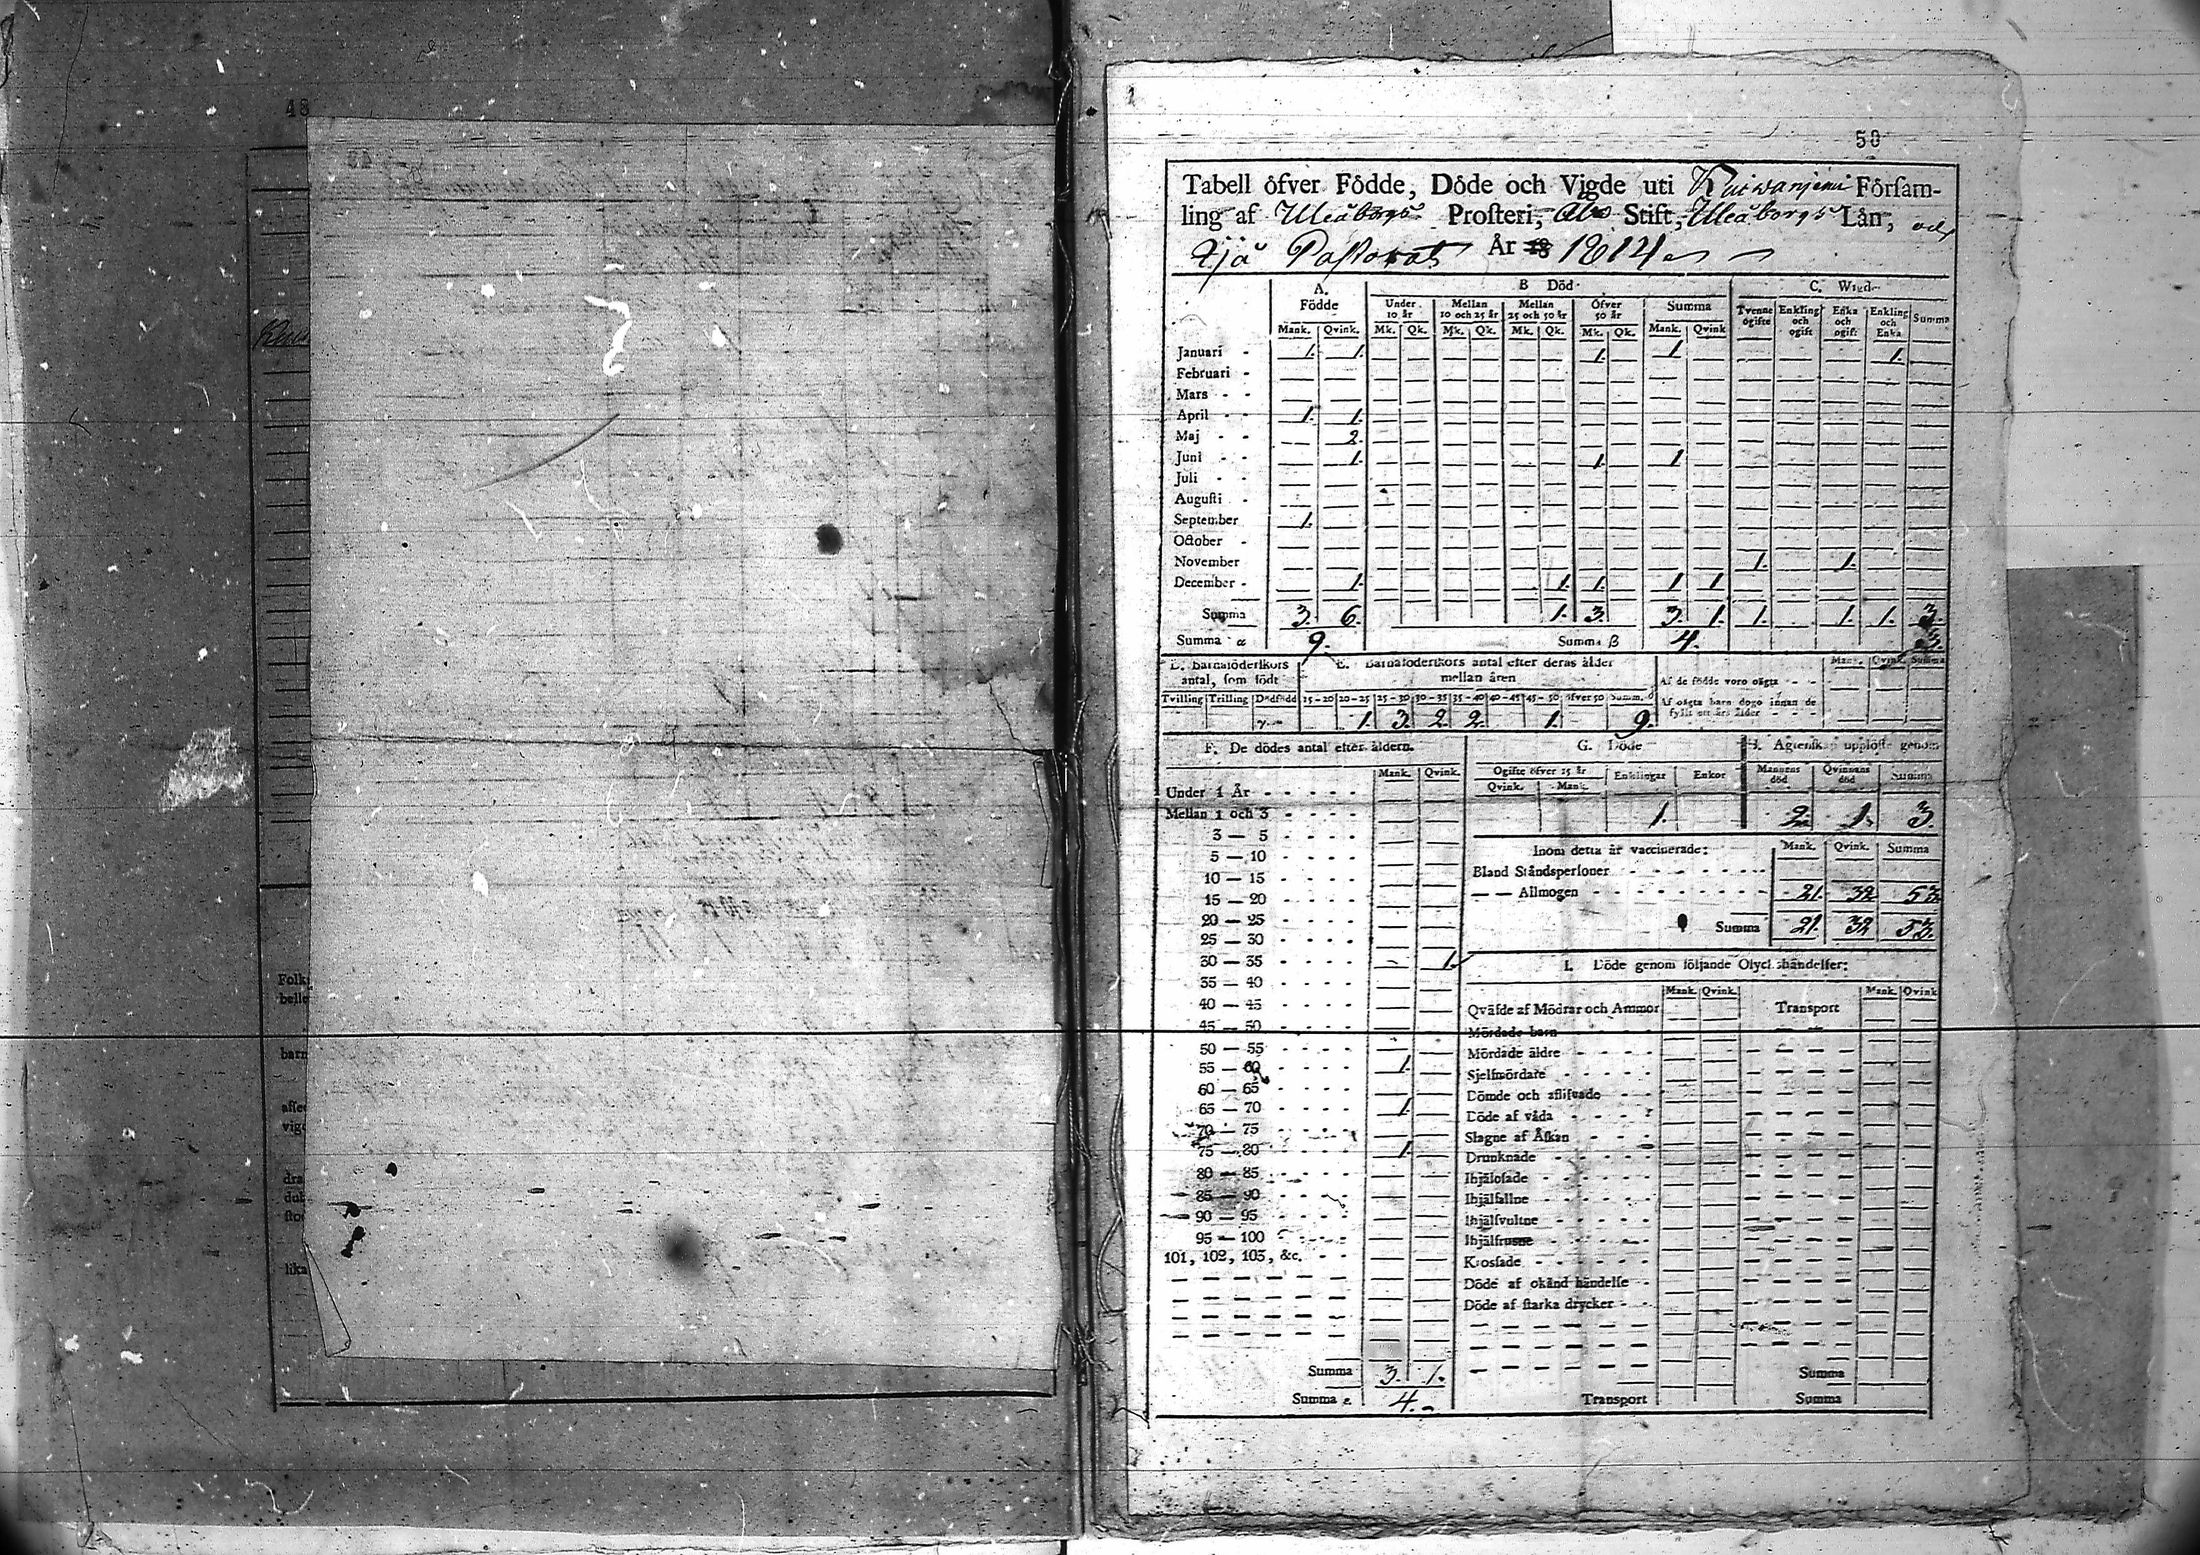 48
Folk
belle
barn
dra
lika
50
Tabell öfver Födde, Döde och Vigde uti Kuiwanjemi Förſam-
ling af Uleåborgs Proſteri, Åbo Stift, Uleåborgs Län, och
Ijå Paſtorat År 18 1814
A. B Död C. Wigde
Födde Under 10 år Mellan 10 och 25 år Mellan 25 och 50 år Öfver 50 år Summa Tvenne ogifte Enkling och ogift Enka och ogift Enkling och Enka Summa
Mank. Qvink. Mk. Qk. Mk. Qk. Mk. Qk. Mk. Qk. Mank. Qvink
Januari - 1. 1. 1. 1. 1.
Februari -
Mars - -
April - - 1. 1.
Maj - - 2.
Juni - - 1. 1. 1.
Juli - -
Auguſti -
September 1.
October -
November 1. 1.
December - 1. 1. 1. 1 1.
Summa 3. 6. 1. 3. 3. 1. 1. 1. 1. 3.
Summa α 9. Summa β 4. 3.
D. Barnaföderſkors E. Barnaföderſkors antal efter deras ålder Mank. Qvink. Summa
antal, ſom födt mellan åren Af de födde voro oägta - -
Tvilling Trilling Dödfödd 15-20 20-25 25-30 30-35 35-40 40-45 45-50 öfver 50 Summ. Af oägta barn dogo innan de
1. 3. 2. 2. 1. 9. fyllt ett års ålder
F. De dödes antal efter åldern. G. Döde H. Ägtenſkap upplöſte genom
Mank. Qvink. Ogifte öfver 15 år Enklingar Enkor Mannens död Qvinnans död Summa
Under 1 År - - - - - Qvink. Mank.
Mellan 1 och 3 - - - - 1. 2. 1. 3.
3 — 5 - - - -
5 — 10 - - - - Inom detta år vaccinerade: Mank. Qvink. Summa
10 — 15 - - - - Bland Ståndsperſoner
15 — 20 - - - - — — Allmogen 21. 32 53
20 — 25 - - - - Summa 21. 32 53.
25 — 30 - - - -
30 — 35 - - - - 1. I. Döde genom följande Olyckshändelſer:
35 — 40 - - - - Mank. Qvink. Mank. Qvink
40 — 45 - - - - Qväfde af Mödrar och Ammor Transport
45 — 50 - - - - Mördade barn
50 — 55 - - - - Mördade äldre
55 — 60 - - - - 1. Sjelfmördare
60 — 65 - - - - Dömde och aflifvade
65 — 70 - - - - 1. Döde af våda
70 — 75 - - - - Slagne af Åſkan
75 — 80 - - - - 1. Drunknade
80 — 85 - - - - Ihjälfaſte
85 — 90 - - - - Ihjälfallne
90 — 95 - - - - Ihjälſvultne
95 — 100 - - - - Ihjälfrusne
101, 102, 103, &c. - - Kroſſade
Döde af okänd händelſe
Döde af ſtarka drycker
Summa 3. 1. Summa
Summa ε 4. Transport Summa